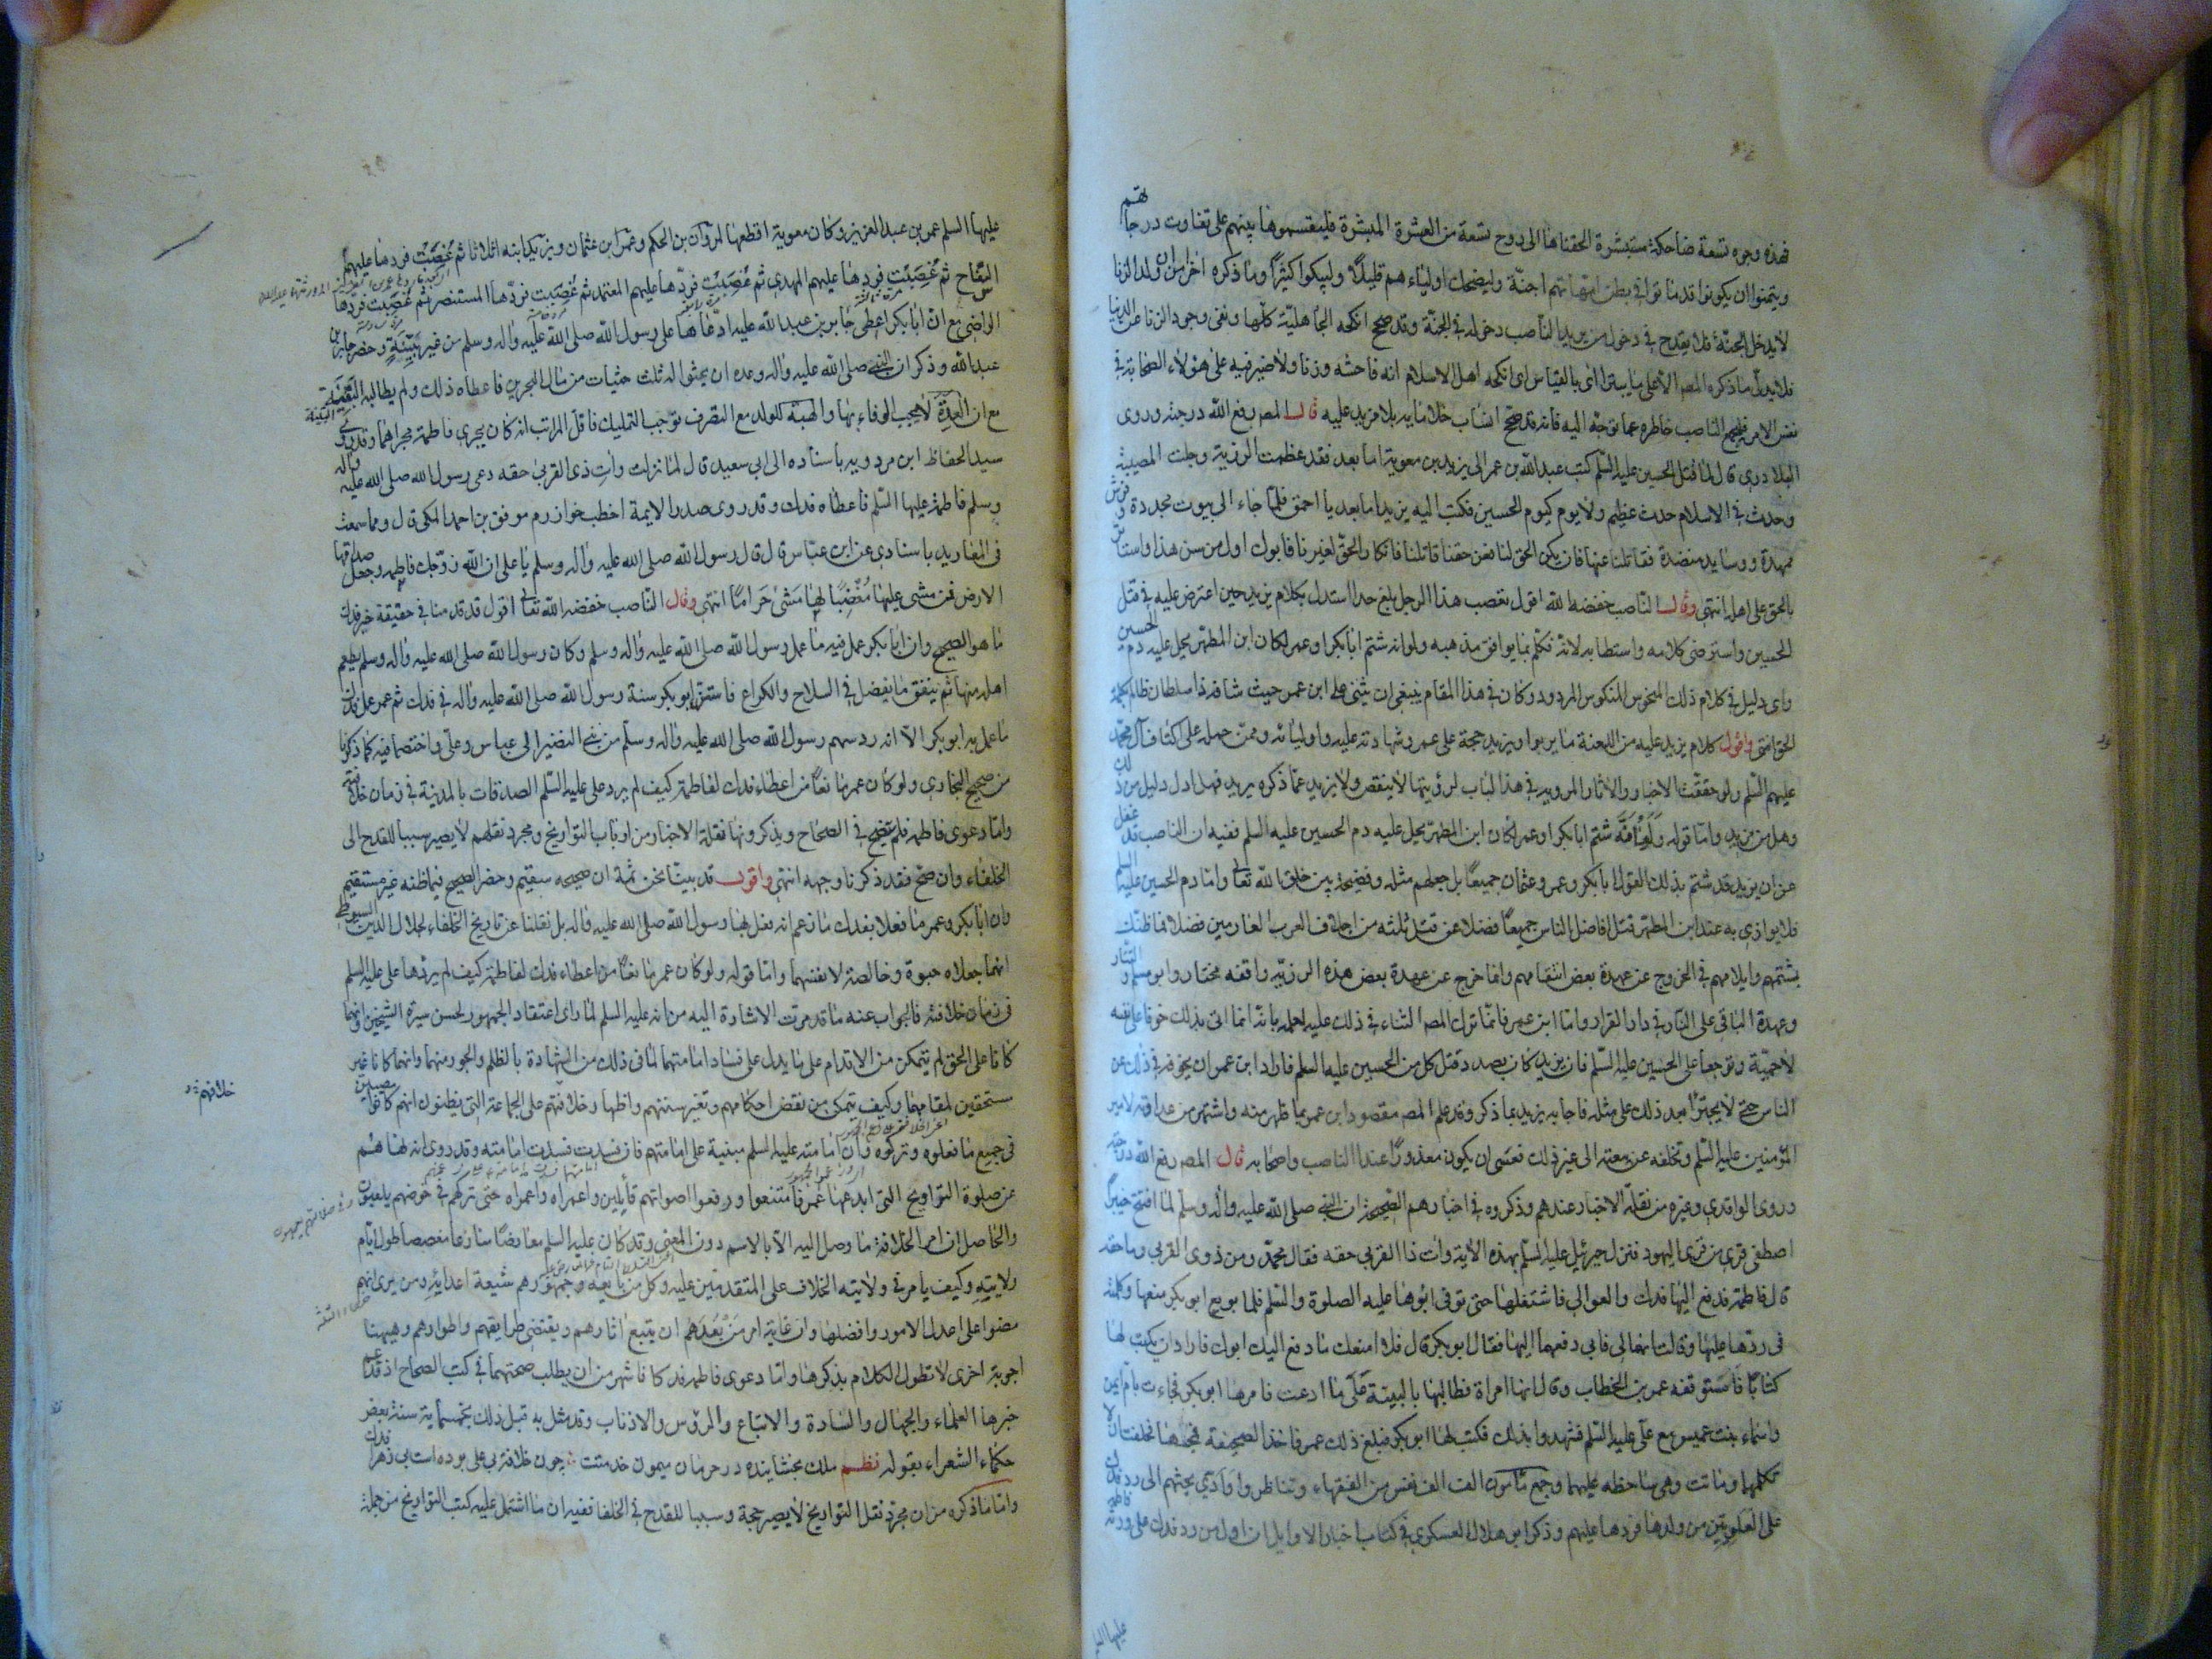 فهذه وجوه تسعة ضاحكة مستبشرة الحقناها الى روح تسعة من العشرة المبشرة فليقسموها بينهم على تفاوت درجاتهم
ويتمنوا ان يكونوا قد ماتوا في بطن امهاتهم اجنّة وليضحك اولياءهم قليلًا وليبكوا كثيرًا وما ذكره اخرا من ان ولد الزنا
لا يدخل الجنّة فلا يقدح في دخول من يريد الناصب دخوله في الجنّة وقد صح انكحه الجاهليّة كلها ونفى وجود الزنا عن
فلا يدلّ ما ذكره المص الا على ما يسترا اى بالقياس الى انكحه اهل الاسلام انه فاحشه وزنا ولا ضير فيه على هؤلاء الصحابة في
نفس الامر فليجمع الناصب خاطره عما توجّه اليه فانه قد صحّح انساب خلفائه بلا مزيد عليه قال المص رفع الله درجته وروى
البلاذرى قال لما قتل الحسين عليه السّلم كتب عبدالله بن عمر الى يزيد بن معوية اما بعد فقد عظمت الرزية وجلت المصيبة
وحدث في الاسلام حدث عظيم ولا يوم كيوم الحسين فكتب اليه يزيد اما بعد يا احمق فلمّا جاء الى بيوت مجددة وفرش
ممهدة ووسايد منضدة فقاتلنا عنها فان يكن الحق لنا فعن حقنا قاتلنا فان كان الحق لغيرنا فابوك اول من سن هذا واستاثر
بالحق على اهله انتهى وقال الناصب خفضه الله اقول تعصب هذا الرجل بلغ حدا استدل بكلام يزيد حين اعترض عليه في قتل
الحسين واسترضى كلامه واستطابه لانه تكلم بما يوافق مذهبه ولو انه شتم ابا بكر او عمر لكان ابن المطهّر يحل عليه دم الحسين
واى دليل في كلام ذلك المنحوس المنكوس المردود وكان في هذا المقام ينبغى ان يثنى على ابن عمر حيث شافه ذا سلطان ظالم بكلمة
الحق انتهى واقول كلام يزيد عليه من اللعنة ما يربو ويزيد حجة على عمر وشهادته عليه واوليائه وممن حمله على اكتاف آل محمّد
عليهم السّلم ولو حققت الاخبار والآثار المروية في هذا الباب لرؤيتها لا ينقص ولا يزيد عمّا ذكره يزيد فهذا دل دليل من ذلك
وهل من مزيد وامّا قوله ولو انّه شتم ابا بكر او عمر لكان ابن المطهّر يحل عليه دم الحسين عليه السلم ففيه ان الناصب قد غفل
عن ان يزيد قد شتم بذلك القول ابا بكر وعمر وعثمان جميعًا بل جعلهم مثله وفضيحة بين خلق الله تعالى وامّا دم الحسين عليه السلم
فلا يوازى به عند ابن المطهّر قتل افاضل الناس جميعًا فضلا عن قتل ثلثه من اجلاف العرب العارمين فضلا فما ظنّك
بشتمهم وايلامهم في الخروج عن عهدة بعض انتقامهم وانما خرج عن عهدة بعض هذه الرزيّة واقفه مختار وابو مسلم والتتار
وعهدة الباقى على النار في دار القرار واما ابن عمر فانّما ترك المص الثناء في ذلك عليه لعلمه بانّه انما اتى بذلك خوفا على نفسه
لا حميّة وتوجعا على الحسين عليه السّلم فان يزيد كان بصدد قتل كل من الحسين عليه السلم فاراد ابن عمر ان يخوفه في ذلك عن
الناس حتى لا يجترأ بعد ذلك على مثله فاجابه يزيد بما ذكر وقد علم المص مقصود ابن عمر بما ظهر منه واشتهر من عداوته لامير
المؤمنين عليه السّلم وتخلفه عن بيعته الى غير ذلك فعسى ان يكون معذورًا عند الناصب واصحابه قال المص رفع الله درجته
وروى الواقدى وغيره من نقلة الاخبار عندهم وذكروه في اخبارهم الصحيحة ان النبى صلى الله عليه واله وسلم لما افتتح خيبرًا
اصطفى قرى من قرى اليهود فنزل جبرئيل عليه السّلم بهذه الاية وات ذا القربى حقه فقال محمّد ومن ذوى القربى وما حقه
قال فاطمة فدفع اليها فدك والعوالى فاشتغلها حتى توفى ابوها عليه الصلوة والسّلم فلما بويع ابو بكر منعها وكلمته
فى ردّها عليها وقالت انها لى فابى دفعهما اليها فقال ابو بكر قال فلا امنعك ما دفع اليك ابوك فاراد ان يكتب لها
كتابًا فاستوقفه عمر بن الخطاب وقال انها امراة فطالبها بالبينة على ما ادعت فامرها ابو بكر فجاءت بام ايمن
واسماء بنت عميس مع على عليه السّلم فشهدوا بذلك فكتب لها ابو بكر فبلغ ذلك عمر فاخذ الصحيفة فمحاها فحلفت ان لا
تكلمهما وماتت وهى ساخطه عليهما وجمع مأمون الف الف نفس من الفقهاء وتناظروا وادّى بحثهم الى رد فدك
على العلويّين من ولدها فردها عليهم وذكر ابو هلال العسكرى في كتاب اخبار الاوايل ان اول من رد فدك على ورثة فاطمة
عليها السلم عمر بن عبد العزيز وكان معوية اقطعها لمروان بن الحكم وعمر ابن عثمان ويزيد ابنه اثلاثا ثم غصبت فردها عليهم
السفّاح ثم غصبت فردها عليهم المهدى ثم غصبت فردّها عليهم المعتمد ثم غصبت فردّها المستنصر ثم غصبت فردها
الراضى مع ان ابا بكر اعطى جابر بن عبد الله عليه ادّعاها على رسول الله صلى الله عليه واله وسلم من غير بيّنة وحضر جابر بن
عبدالله وذكر ان النبى صلى الله عليه واله وعده ان يحثو اله ثلث حثيات من مال البحرين فاعطاه ذلك ولم يطالبه البيّنة
مع ان العدة لا يجب الوفاء بها والهبه للولد مع التصرف توجب التمليك فاقل المراتب انه كان يجرى فاطمة مجراهما وقد روى
سيد الحفاظ ابن مردويه باسناده الى ابى سعيد قال لما نزلت وات ذى القربى حقه دعى رسول الله صلى الله عليه واله
وسلم فاطمة عليها السّلم فاعطاه فدك وقد روى صدر الايمة اخطب خوارزم موفق بن احمد المكى قال ومما سمعت
فى المفاريد باسنادى عن ابن عبّاس قال قال رسول الله صلى الله عليه واله وسلم يا على ان الله زوّجك فاطمه وجعل صداقها
الارض فمن مشى عليها مُغضِبًا لها مَشى حَرامًا انتهى وقال النّاصب خفضه الله تعالى اقول قد قدمنا في حقيقة خبر فدك
ما هو الصحيح وان ابا بكر عمل فيه ما عمل رسول الله صلى الله عليه واله وسلم وكان رسول الله صلى الله عليه واله وسلم يطعم
اهله منها ثم ينفق ما يفضل في السلاح والكراع فاستمرّ ابو بكر سنة رسول الله صلى الله عليه واله في فدك ثم عمر عمل في فدك
ما عمل به ابو بكر الّا انه رد سهم رسول الله صلى الله عليه واله وسلّم من بنى النضير الى عباس وعلى واختصما فيه كما ذكرنا
من صحيح البخارى ولو كان عمر مانعًا من اعطاء فدك لفاطمة كيف لم يرد على عليه السّلم الصدقات بالمدينة في زمان خلافته
وامّا دعوى فاطمه فلم يصحّ في الصحاح ويذكرونها نقلة الاخبار من ارباب التواريخ ومجرد نقلهم لا يصير سببا للقدح الى
الخلفاء وان صحّ فقد ذكرنا وجهه انتهى واقول قد بيّنا نحن ثمة ان صحيحه سقيم وحضر الصحيح فيما ظنه غير مستقيم
وان ابا بكر وعمر ما فعلا بفدك ما زعم انه فعل بها رسول الله صلى الله عليه واله بل نقلنا عن تاريخ الخلفاء لجلال الدين السيوطى
انهما جعلاه حبوة وخالصة لانفسهما وامّا قوله ولو كان عمر مانعًا من اعطاء فدك لفاطمة كيف لم يردّها على عليه السلم
فى زمان خلافته فالجواب عنه ما قد مرت الاشارة اليه من انه عليه السلم لما راى اعتقاد الجمهور لحسن سيرة الشيخين وانهما
كانا على الحق لم يتمكن من الاقدام على ما يدل على فساد امامتهما لما فى ذلك من الشهادة بالظلم والجور منهما وانهما كانا غير
مستحقين لمقامهما وكيف يتمكن من نقض احكامهم وتغير سننهم واظهار خلافتهم على الجماعة التى يظنون انهم كانوا مصيبين
خلافهم
فى جميع ما فعلوه وتركوه وان امامته عليه السلم مبنية على امامتهم فان فسدت فسدت امامته وقد روى انه نهاهم
عن صلوة التراويح التى ابدعها عمر فامتنعوا ورفعوا اصواتهم قايلين واعمراه واعمراه حتى تركهم فى خوضهم يلعبون
والحاصل ان امر الخلافة ما وصل اليه الّا بالاسم دون المعنى وقد كان عليه السلم معارضًا منازعا مغصصا طول ايّام
ولايتهِ وكيف يامر فى ولايته الخلاف على المتقدمين عليه وكل من بايعه وجمهورهم شيعة اعدائهِ ومن يرى انهم
مضوا على اعدل الامور وافضلها وان غاية امر من بعدهم ان يتبع اثارهم ويقتفى طرايقهم واطوارهم وهيهنا
اجوبة اخرى لا تطول الكلام بذكرها وامّا دعوى فاطمه فدكا فاشهر من ان يطلب صحتهما فى كتب الصحاح اذ قد عم
خبرها العلماء والجهال والسادة والاتباع والرؤس والاذناب وقد مثل به قبل ذلك بخمسماية سنة بعض
حكماء الشعراء بقوله نظم ملك بخشاينده در حرمان ميمون خدمتت چون خلافة بى على بوده است بى زهرا فدك
وامّا ما ذكره من ان مجرّد نقل التواريخ لا يصير حجة وسببا للقدح فى الخلفا ففيه ان ما اشتمل عليه كتب التواريخ من جملة